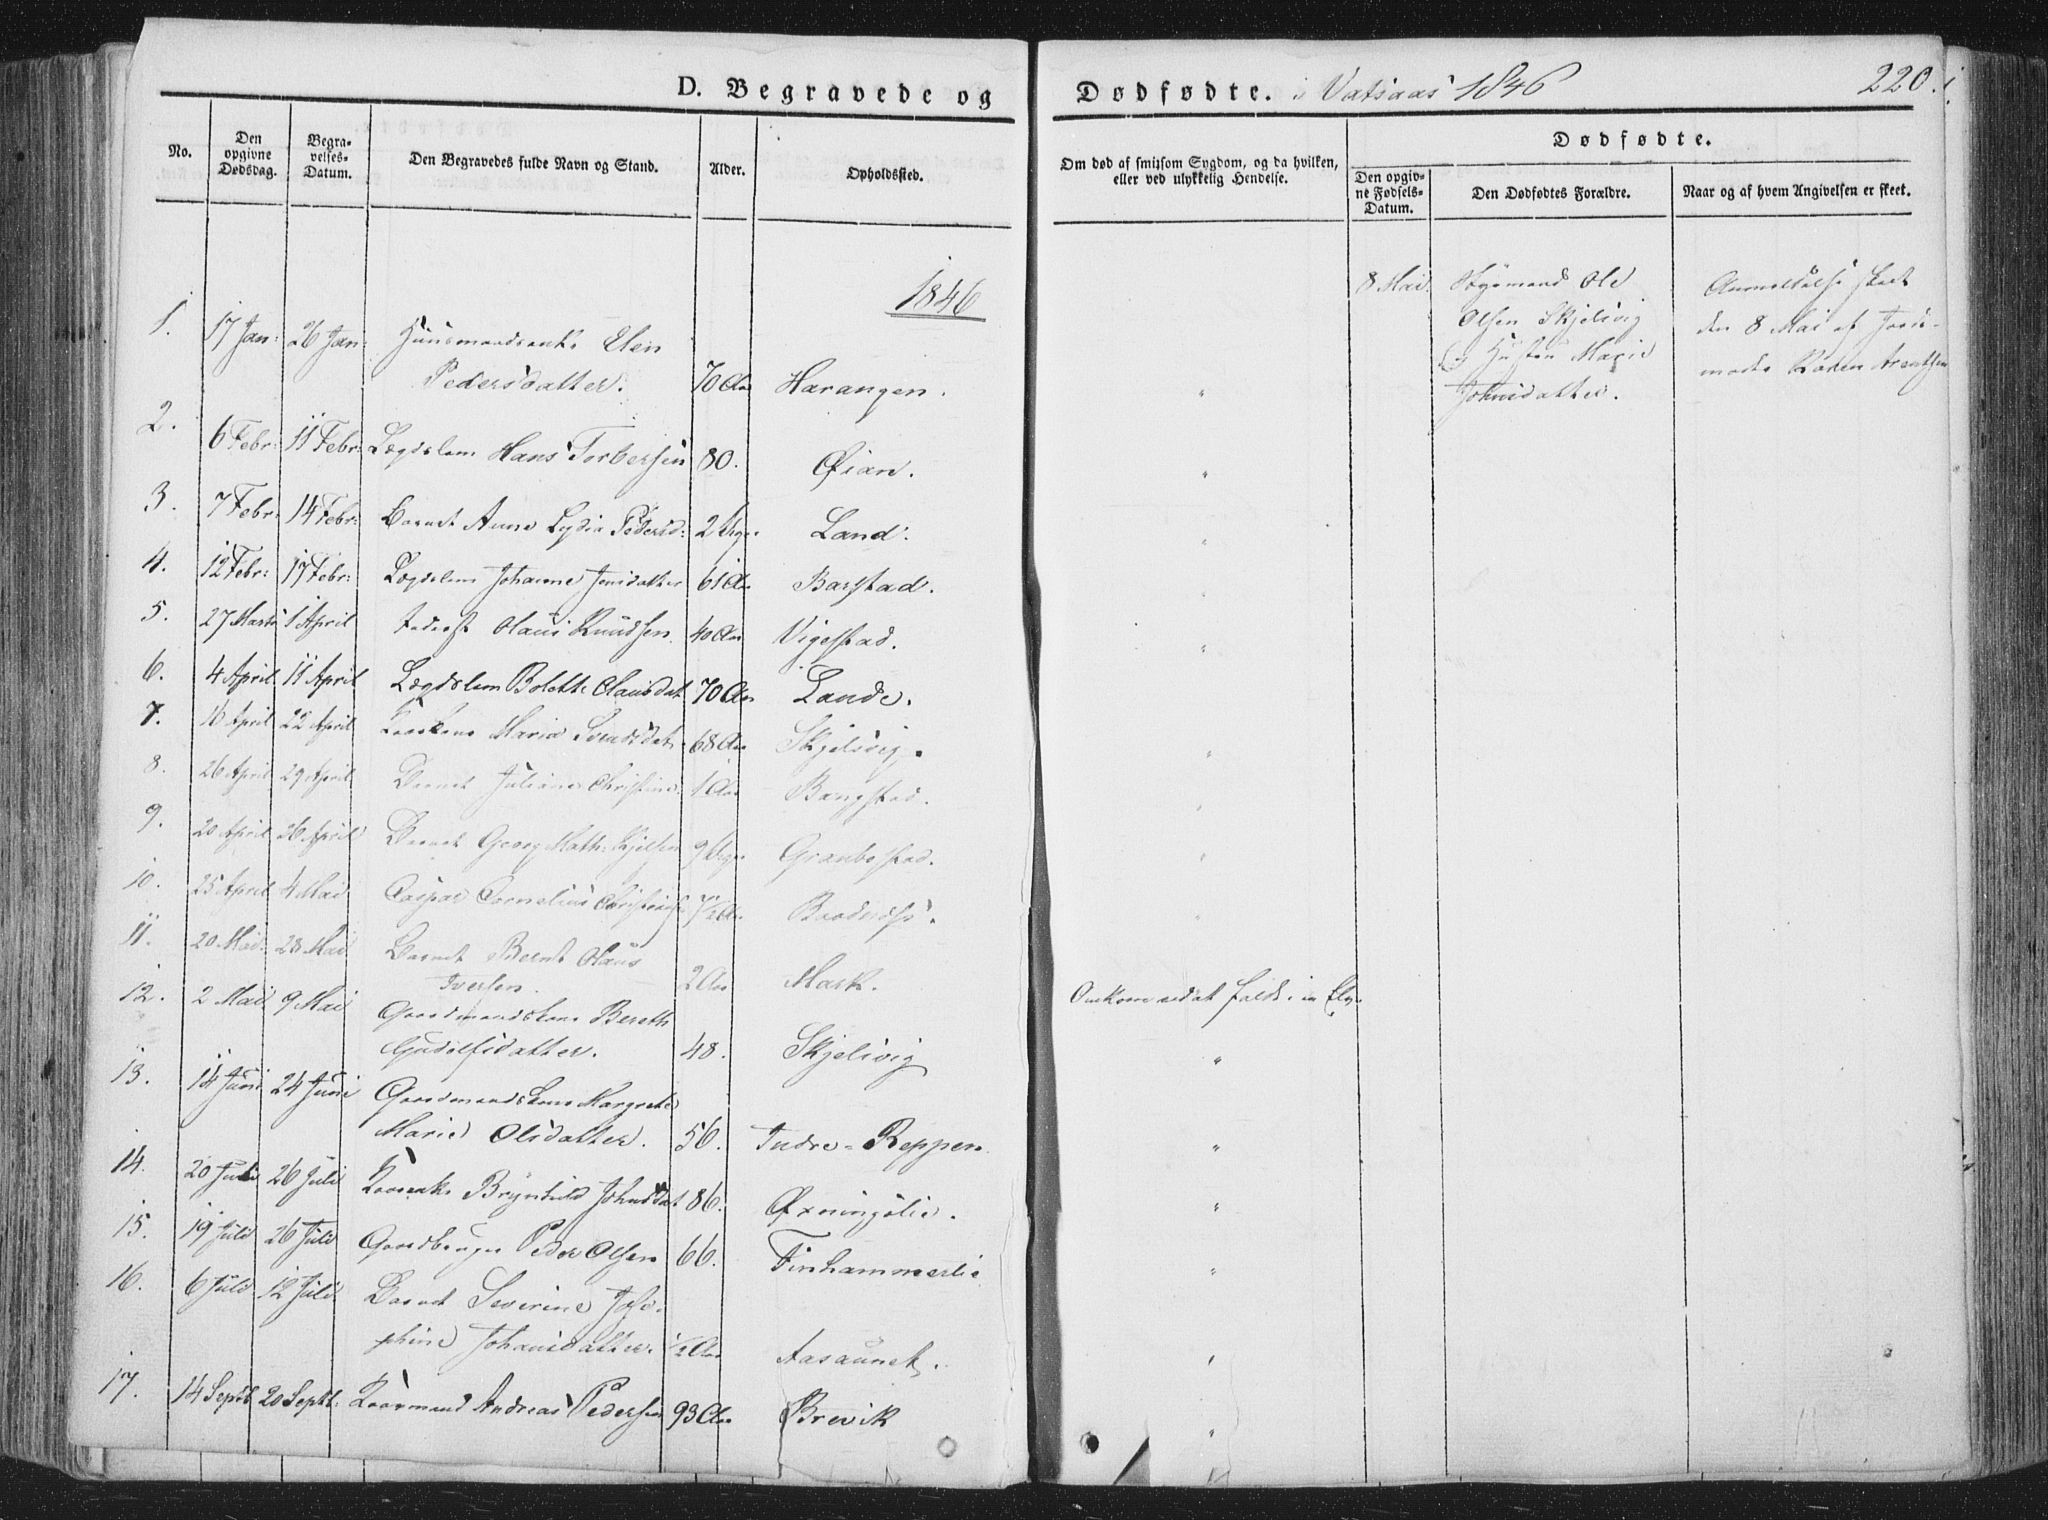 D. Begravede og Dødfødte. i Vatsaas 1846
220.
No.
Den opgivne Dødsdag.
Begravelses-Datum.
Den Begravedes fulde Navn og Stand.
Alder.
Opholdssted.
Om død af smitsom Sygdom, og da hvilken, eller ved ulykkelig Hendelse.
Dødfødte.
Den opgivne Fødsels-Datum.
Den Dødfødtes Forældre.
Naar og af hvem Angivelsen er skeet.
1846
1. 17 Jan: 26 Jan: Huusmandsenke Elen
Pedersdatter. 70 Aar Harangen. "
2. 6 Febr: 11 Febr: Lægdslem Hans Torbersen 80. Øian. "
3. 7 Febr: 14 Febr: Barnet Anne Lydia Pedersd: 2 Uger Land. "
4. 12 Febr: 17 Febr: Lægdslem Johanne Jensdatter 61 Aar Barstad.
5. 27 Marts 1 April Inderst Claus Knudsen 40 Aar Vigestad. "
6. 4 April 11 April Lægdslem Bolette Clausdat 70 Aar Lande.
7. 16 April 22 April Kaarkone Maria Svendsdat 68 Aar Skjelsvig. "
8. 26 April 29 April Barnet Juliane Christine 1 Aar Bangstad. "
9. 20 April 26 April Barnet Georg Math: Kjelsen 9 Uger Granbostad. "
10. 25 April 4 Mai Caspar Cornelius 1/2 Aar "
11. 20 Mai 28 Mai Barnet Bernt Claus
Iversen. 2 Aar Mark.
12. 2 Mai 9 Mai Gaardmandskone Bereth Omkom ved at falde i en Elv.
Gudolfsdatter. 48. Skjelsvig "
13. 14 Juni 24 Juni Gaardmandskone Margrete
Marie Olsdatter. 56. Indre-Reppen. "
14. 20 Juli 26 Juli Kaarenke Brynhild Johnsdat 86. Øxningslie. "
15. 19 Juli 26 Juli Gaardbruger Peder Olsen 66. Finhammerlie "
16. 6 Juli 12 Juli Barnet Severine Jose-
phine Johansdatter. 1/2 Aar Aasaunet.
17. 14 Septb 20 Septb: Kaarmand Andreas Pedersen 93 Aar Brevik "
8 Mai
Ole
Olsen Skjelsvig
og Hustru Marie
Johnsdatter.
Anmeldelse skeet
den 8 Mai af Jorde-
moder Karen Arentzen